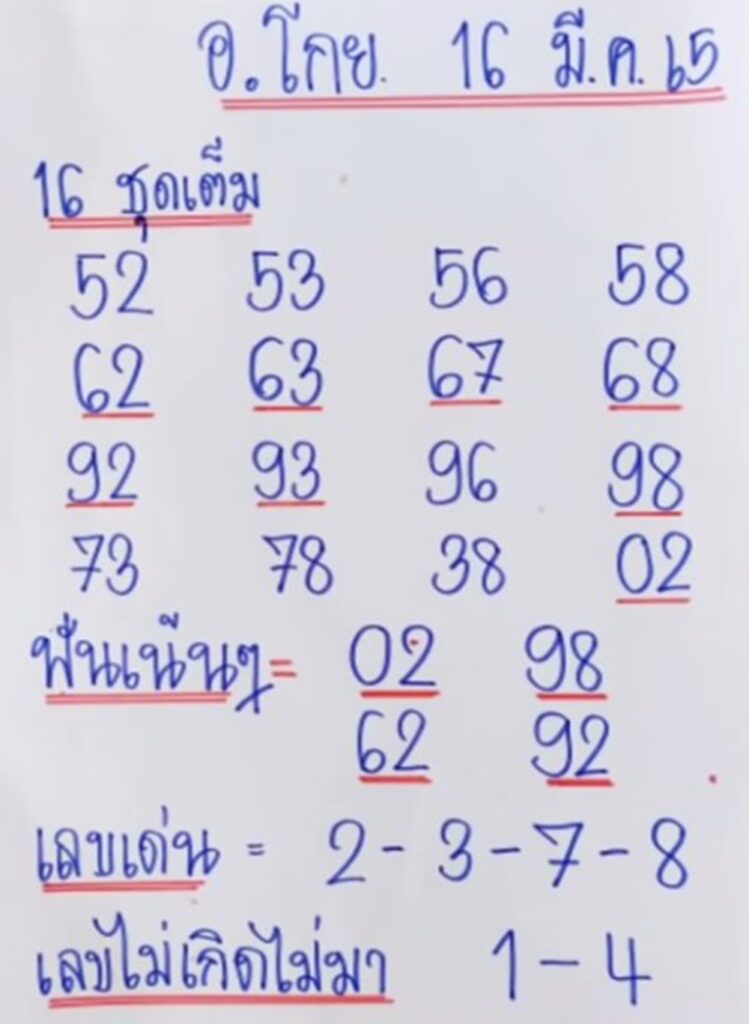 อ.โกย. 16 มี.ค. 65
16 ชุดเต็ม
52 53 56 58
62 63 67 68
92 93 96 98
73 78 38 02
ฟันเน้นๆ = 02 98
62 92
เลขเด่น = 2 - 3 - 7 - 8
เลขไม่เกิดไม่มา 1 - 4